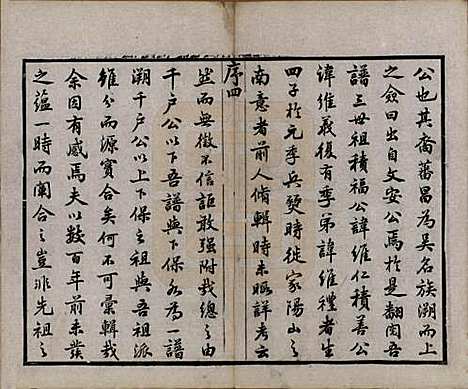 公也其裔蕃昌為吳名族溯而上
之僉曰出自文安公焉於是翻閱吾
譜三世祖積福公諱維仁積善公
諱維義復有季弟諱維禮者生
四子於元季兵燹時徙家陽山之
南意者前人脩輯時未暇詳考云
序四
然而無徵不信詎敢強附哉總之由
千戶公以下吾譜與下保各為一譜
溯千戶公以上下保之祖與吾祖派
雖分而源實合矣何不可彙輯哉
余因有感焉夫以數百年前未業
之蘊一時而闡合之豈非先祖之